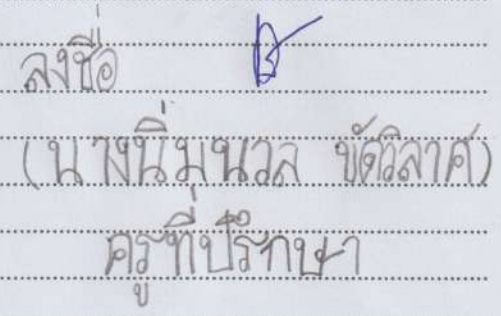 ลงชื่อ
(นางนิ่มนวล ขัดวิลาศ)
ครูที่ปรึกษา